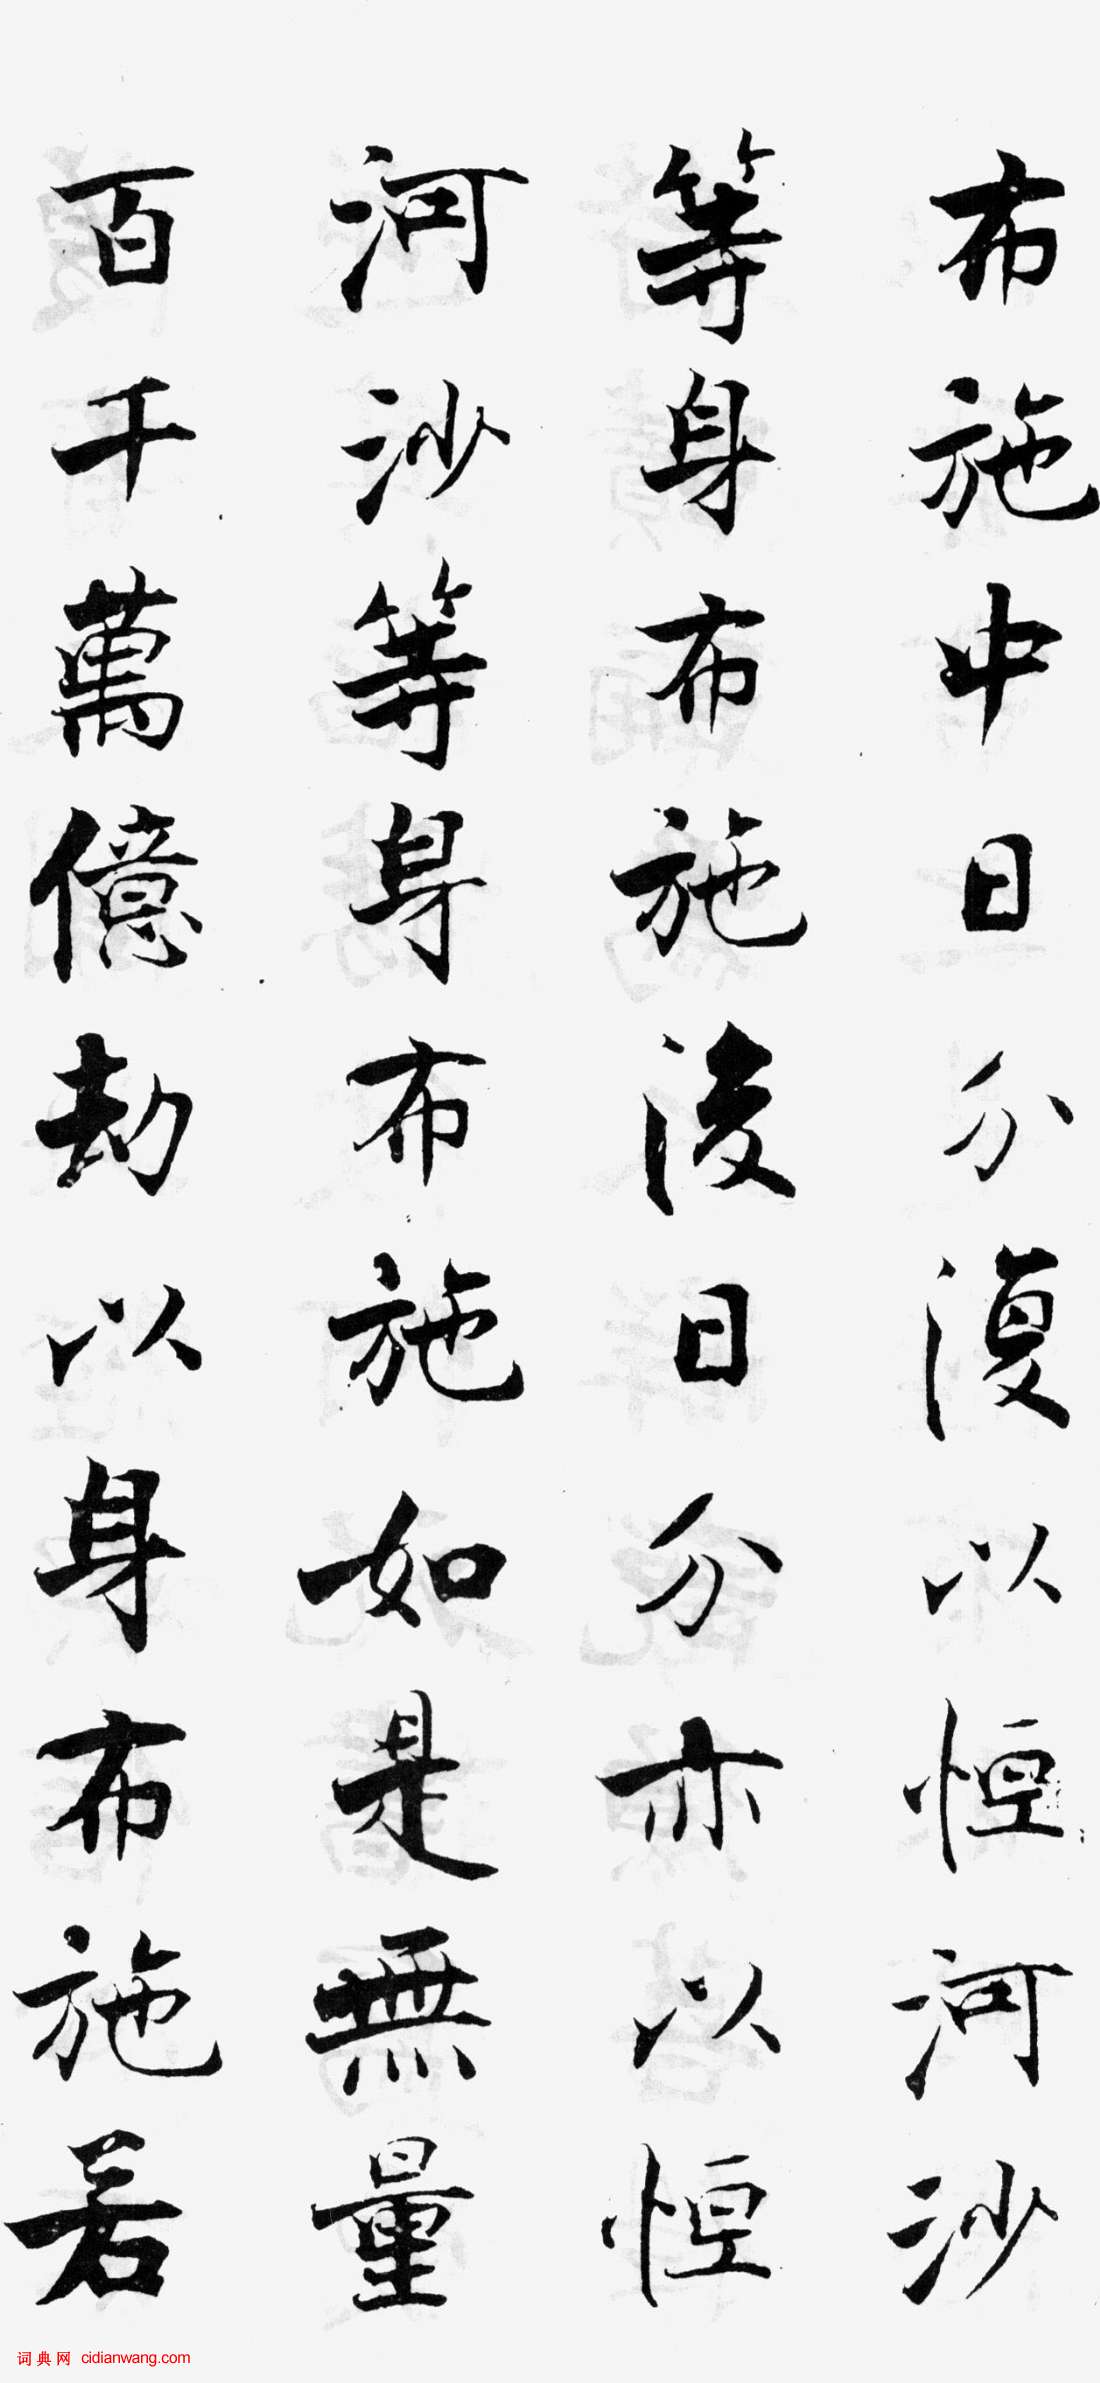 布施中日分復以恒河沙
等身布施後日分亦以恒
河沙等身布施如是無量
百千萬億劫以身布施若
词典网 cidianwang.com